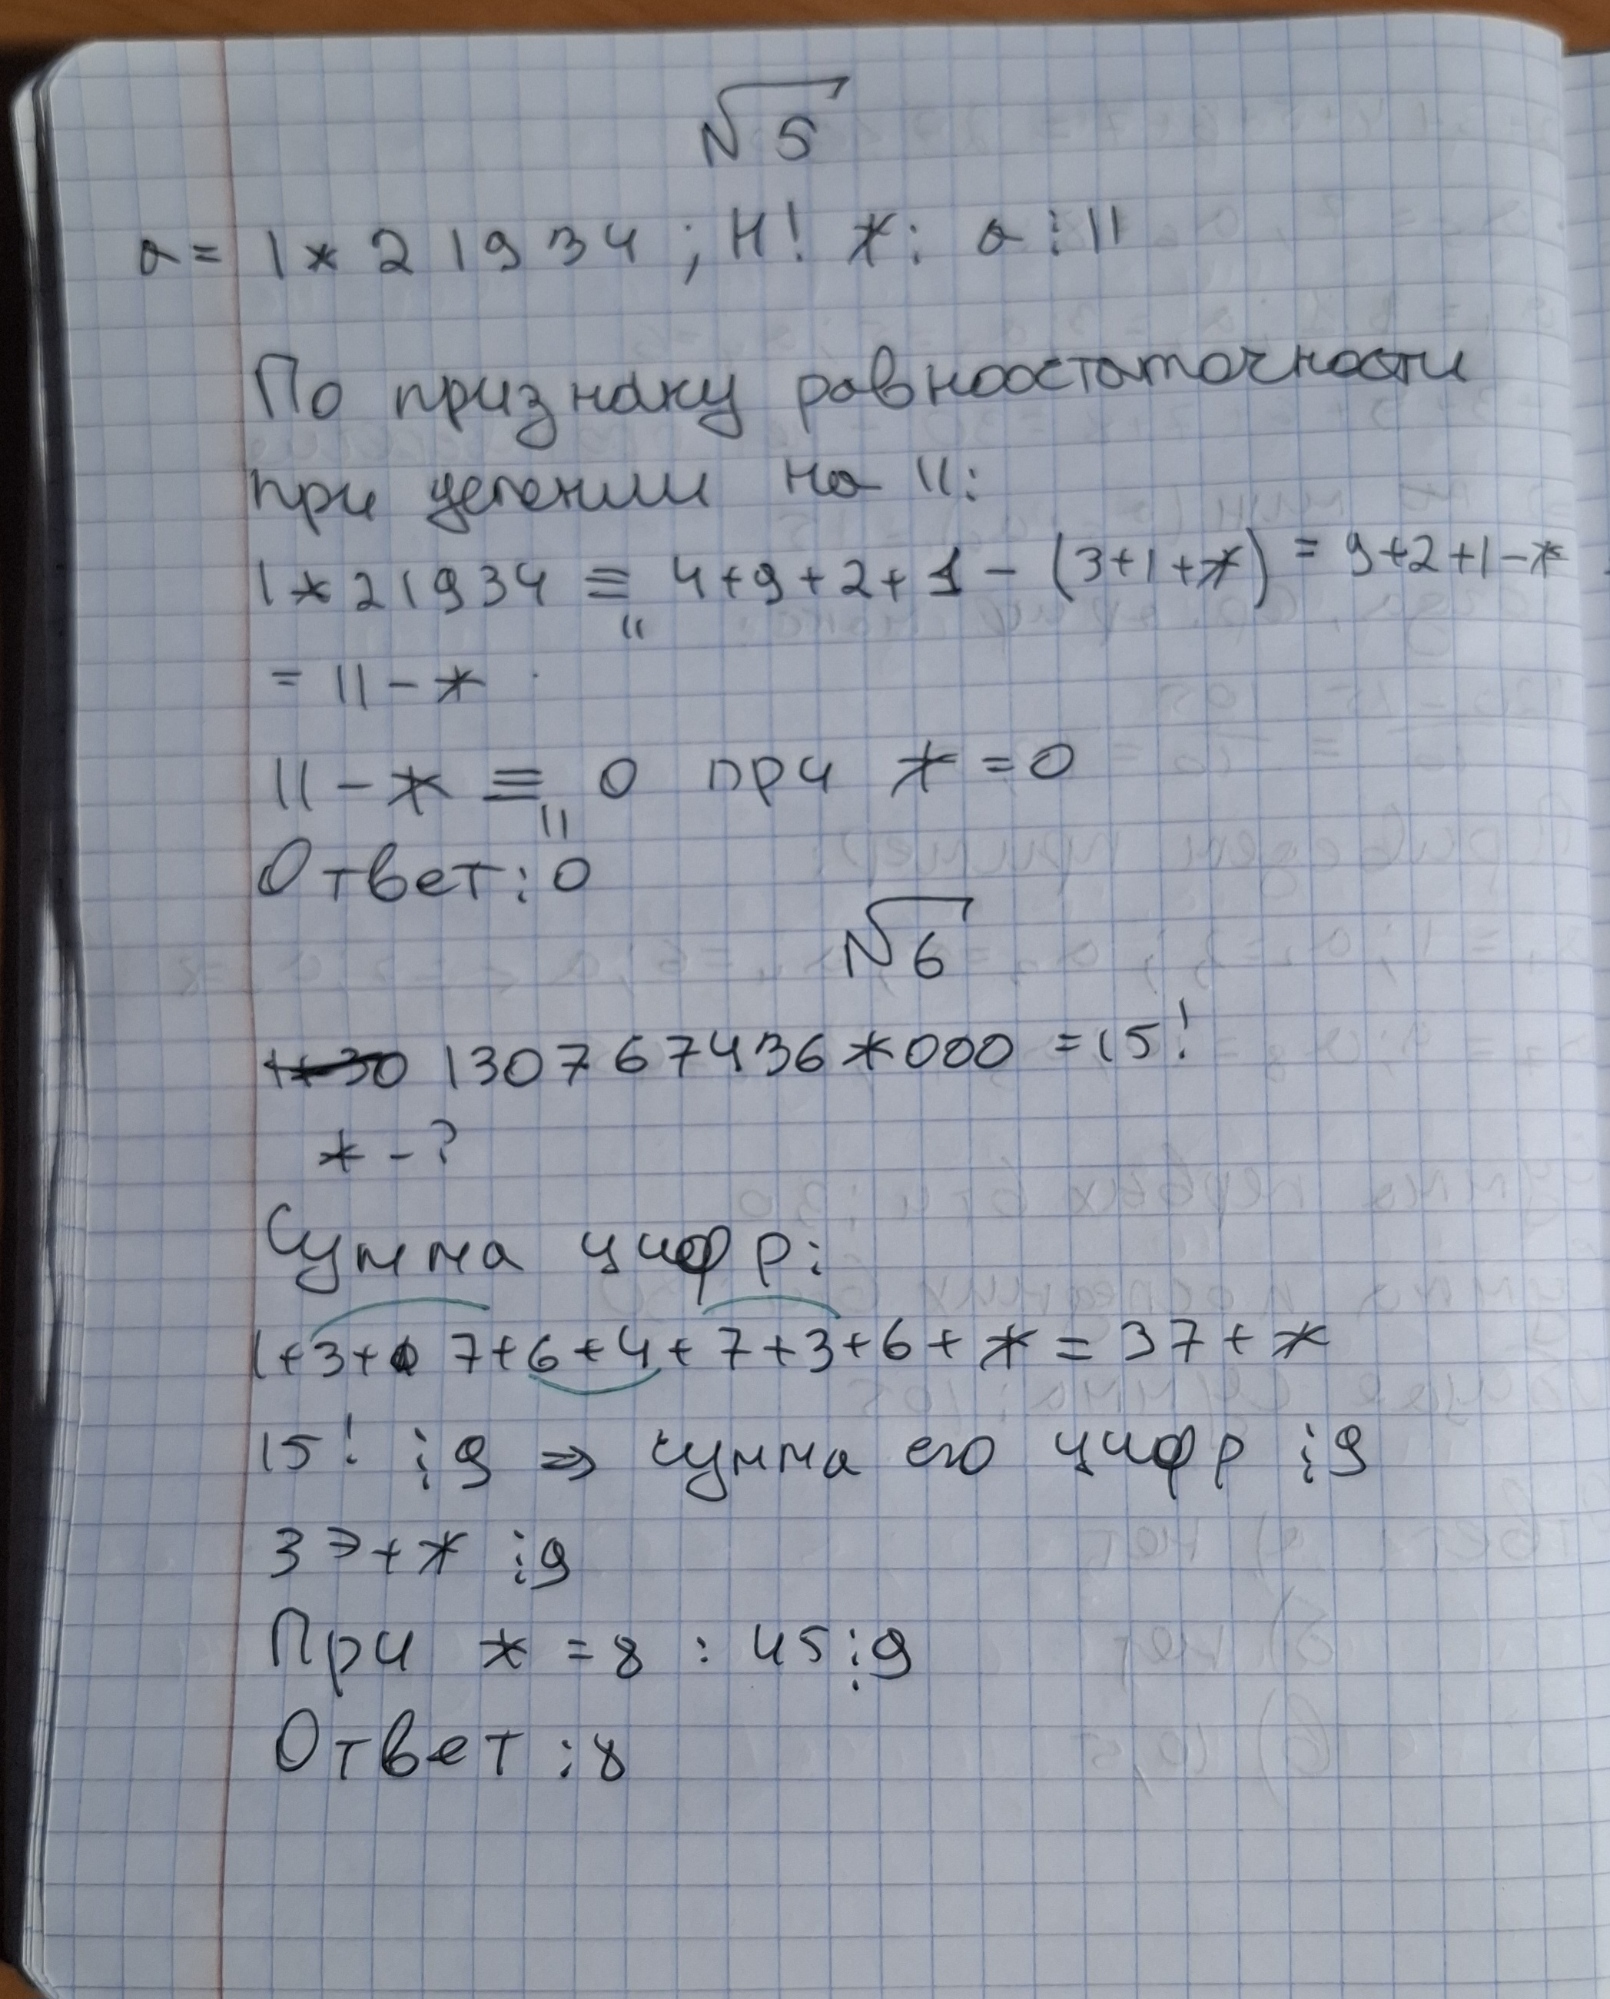 №5
a = 1*21934 ; Н! *: a ⋮ 11
По признаку равноостаточности
при делении на 11:
1*21934 ≡₁₁ 4+9+2+1-(3+1+*) = 9+2+1-*
= 11-*
11-* ≡₁₁ 0 при *=0
Ответ: 0
№6
130767436*000 = 15!
*-?
Сумма цифр:
1+3+ 7+6+4+7+3+6+* = 37+*
15! ⋮ 9 ⇒ сумма его цифр ⋮ 9
37+* ⋮ 9
При * = 8 : 45 ⋮ 9
Ответ: 8